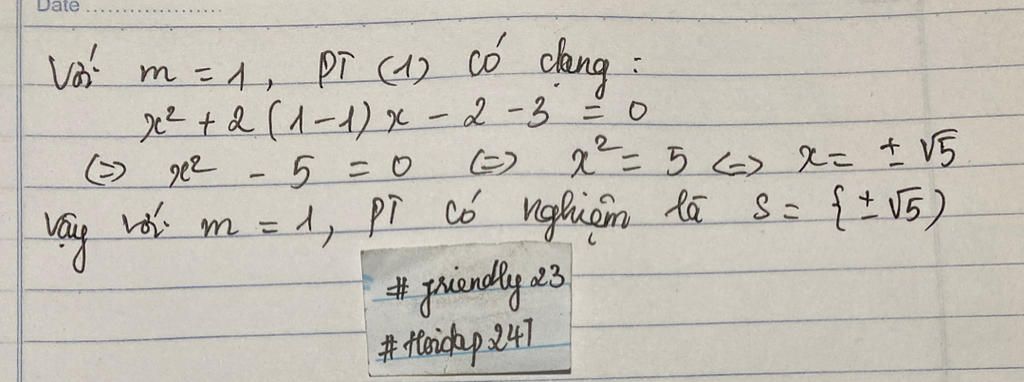 Date
Với m = 1, PT (1) có dạng :
x² + 2 (1-1) x - 2 - 3 = 0
(=) x² - 5 = 0 (=) x² = 5 <=> x = ± √5
Vậy với m = 1, PT có nghiệm là S = {± √5)
# friendly 23
# Hoidap 247